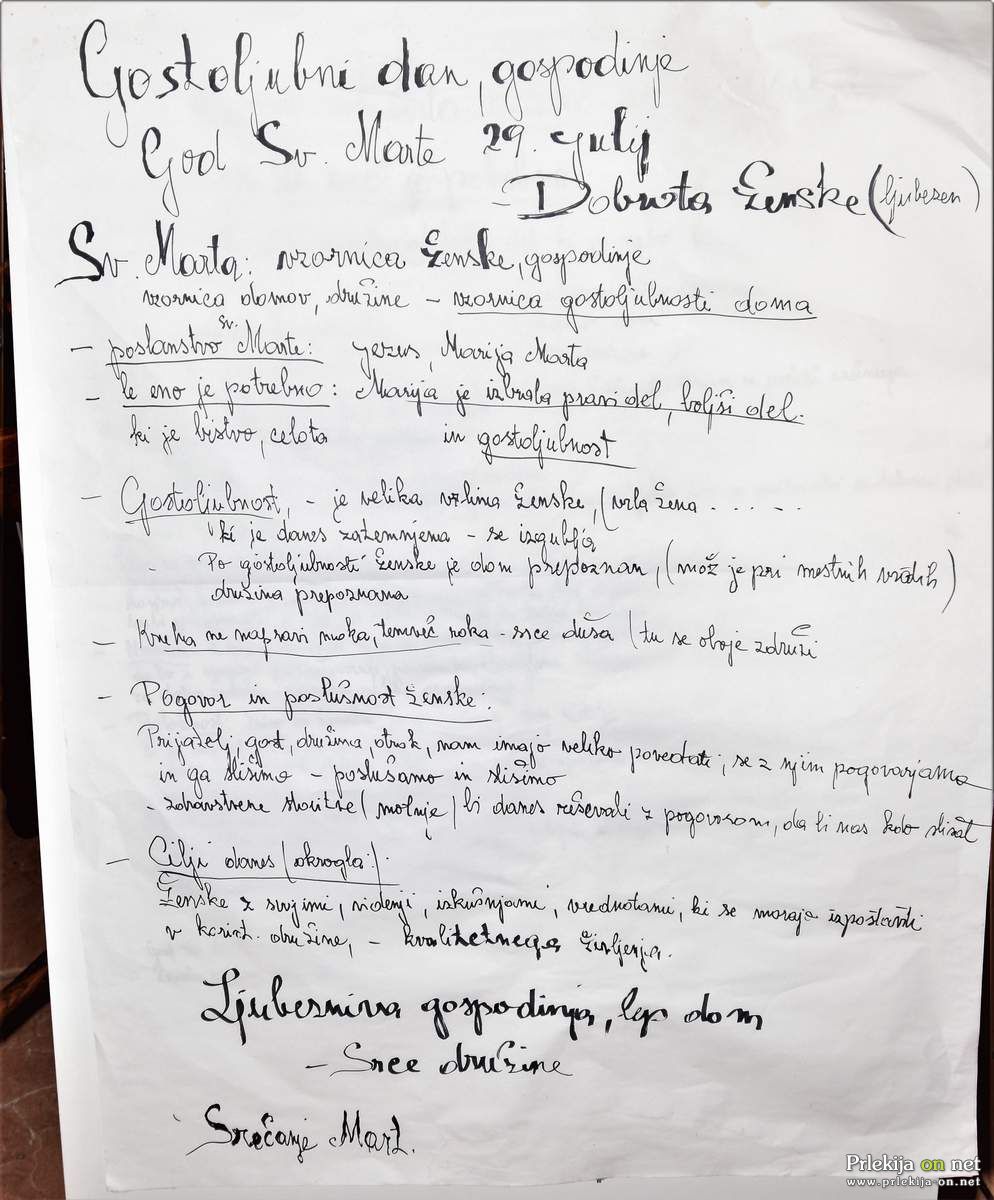 Gostoljubni dan, gospodinje
God Sv. Marte 29. julij
- Dobrota ženske (ljubezen)
Sv. Marta: vzornica ženske, gospodinje
vzornica domov, družine - vzornica gostoljubnosti doma
- poslanstvo sv. Marte: Jezus, Marija Marta
- le eno je potrebno: Marija je izbrala pravi del, boljši del.
ki je bistvo, celota in gostoljubnost
- Gostoljubnost, - je velika vrlina ženske, (vrla žena . . . . .
ki je danes zatemnjena - se izgublja
Po gostoljubnosti ženske je dom prepoznan, (mož je pri mestnih vratih)
družina prepoznana
- Kruha ne napravi moka, temveč roka - srce duša (tu se oboje združi
- Pogovor in poslušnost ženske:
Prijatelj, gost, družina, otrok, nam imajo veliko povedati, se z njim pogovarjamo
in ga slišimo - poslušamo in slišimo
- zdravstvene storitve (motnje) bi danes reševali z pogovorom, da bi nas kdo slišal
- Cilji danes (okrogla:)
Ženske z svojimi, videnji, izkušnjami, vrednotami, ki se morajo izpostaviti
v korist. družine, - kvalitetnega življenja.
Ljubezniva gospodinja, lep dom
- Srce družine
Srečanje Mart.
Prlekija on net
www.prlekija-on.net